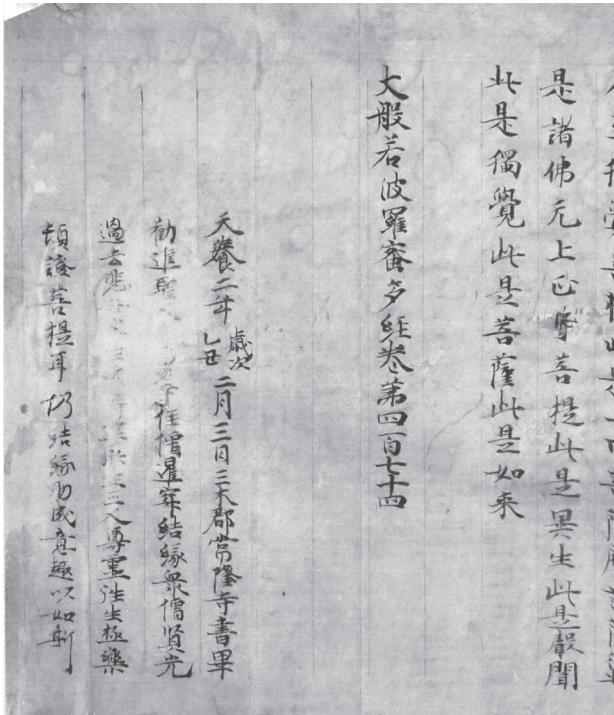 是諸佛元上正等菩提此是異生此是聲聞
此是獨覺此是菩薩此是如来
大般若波羅蜜多経卷第四百七十四
天養二年歳次乙丑二月三日三木郡常隆寺書畢
勧進聖 住僧暹寂結縁衆僧賢光
過去 三人尊霊往生極樂
頓證菩提耳仍結縁助成意趣以如斯